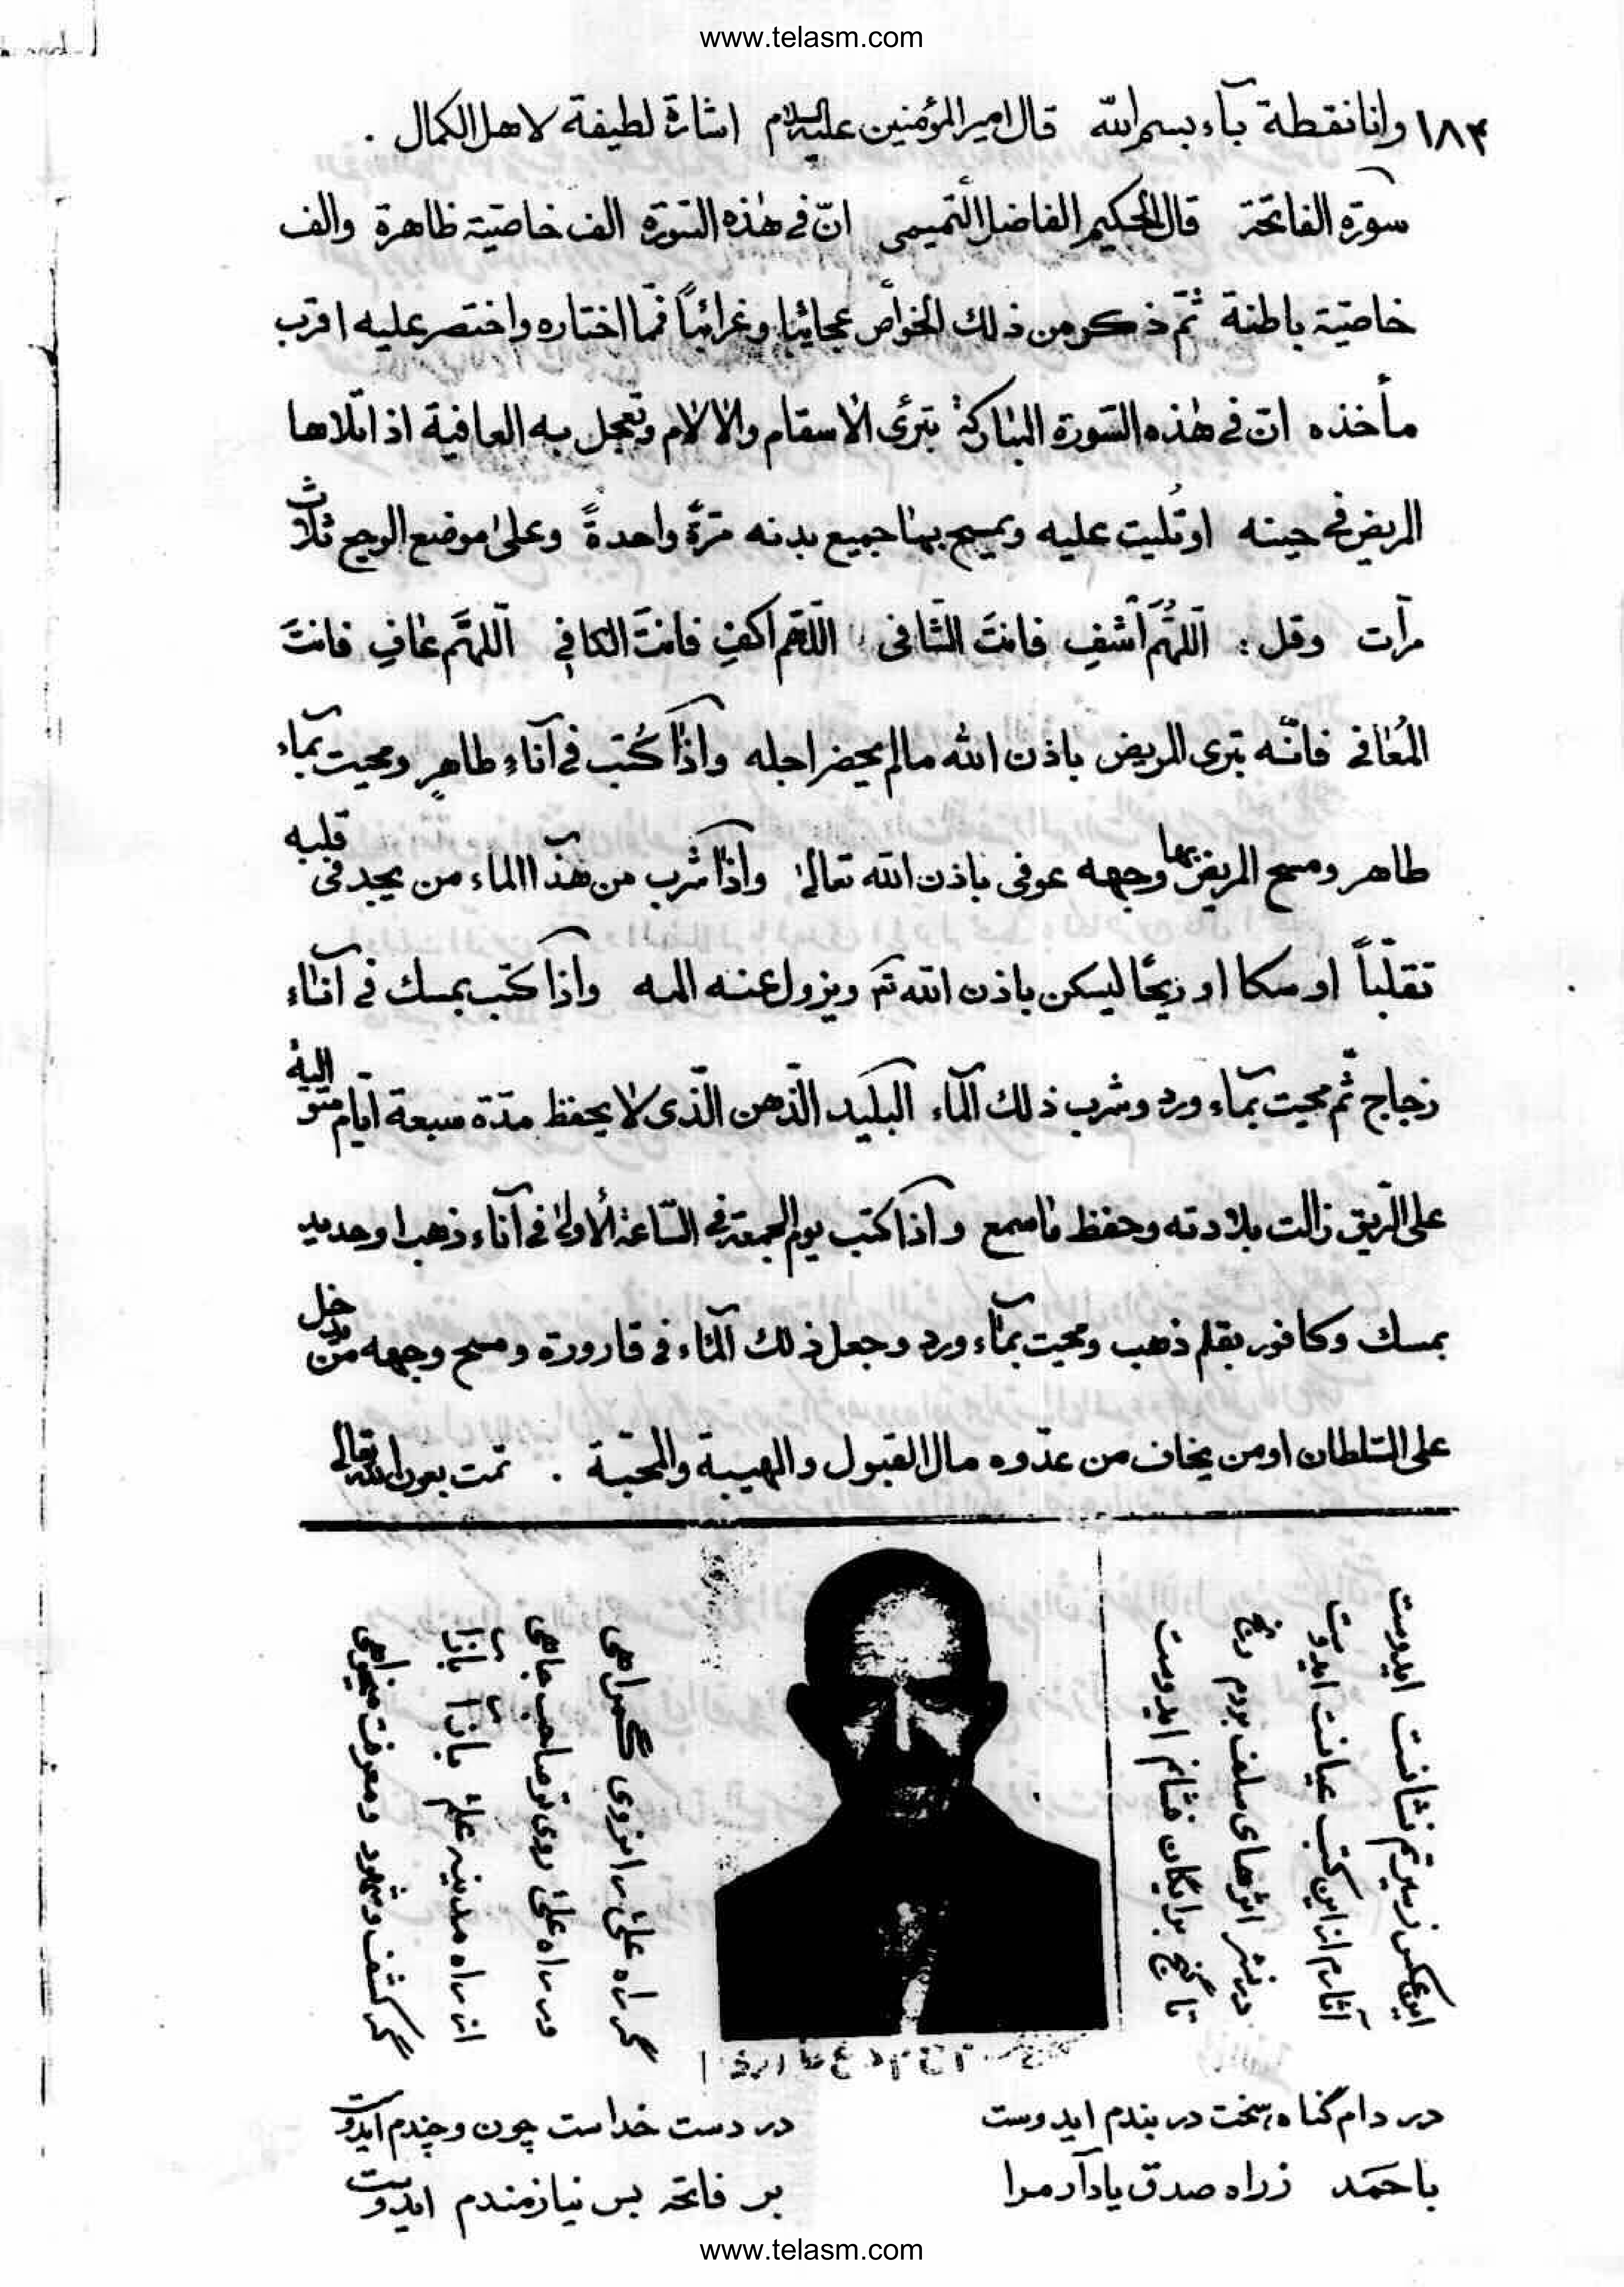 www.telasm.com
۱۸۴ وانا نقطة بآء بسم الله قال امير المؤمنين عليه السلام اشارة لطيفة لاهل الكمال .
سورة الفاتحة قال الحكيم الفاضل التميمى انّ فى هذه السّورة الف خاصّية ظاهرة والف
خاصّية باطنة ثمّ ذكر من ذلك الخواص عجائبا وغرائباً فمّا اختاره واختصر عليه اقرب
مأخذه انّ فى هذه السّورة المباركة تبرئ الاسقام والالام وتعجل به العافية اذا تلاها
المريض فى حينه او تُليت عليه ويمسح بها جميع بدنه مرّة واحدةً وعلى موضع الوجع ثلاث
مرآت وقل : اَللّهُمَّ اشْفِ فانتَ الشّافى اللّهم اكفِ فانتَ الكافى اَللّهمَّ عافِ فانتَ
المُعافى فانّه تبرى المريض باذن الله مالم يحضر اجله واذا كُتب فى آناءِ طاهرٍ ومحيت بمآء
طاهر ومسح المريض بها وجهه عوفى باذن الله تعالى واذا شرب من هذا الماء من يجد فى قلبه
تقلّباً او سكا او ريحًا ليسكن باذن الله تم ويزول عنه المه واذا كتب بمسك فى آناء
زجاج ثمّ محيت بمآء ورد وشرب ذلك المآء البليد الذّهن الّذى لا يحفظ مدّة سبعة ايّام متوالية
على الرّيق زالت بلادته وحفظ ما سمع واذا كتب يوم الجمعة فى السّاعة الأولى فى آناء ذهب او حديد
بمسك وكافور بقلم ذهب ومحيت بمآء ورد وجعل ذلك المآء فى قارورة ومسح وجهه من يدخل
على السّلطان او من يخاف من عدّوه مال القبول والهيبة والمحبّة . تمت بعون الله تعالى
این عکس ز سیرتم نشانت ایدوست
آثارم از این کتب عیانت ایدوست
در نشر اثرهای سلف بردم رنج
تا گنج برایگان فشانم ایدوست
گر راه علی را نروی گمراهی
ور راه علی روی تو صاحب جاهی
از راه مدینه علم بازآ بازآ
گر کشف و شهود و معرفت میخواهی
در دام گناه، سخت در بندم ایدوست در دست خداست چون و چندم ایدوست
باحَمَد ز راه صدق یادآر مرا بر فاتحه بس نیازمندم ایدوست
www.telasm.com